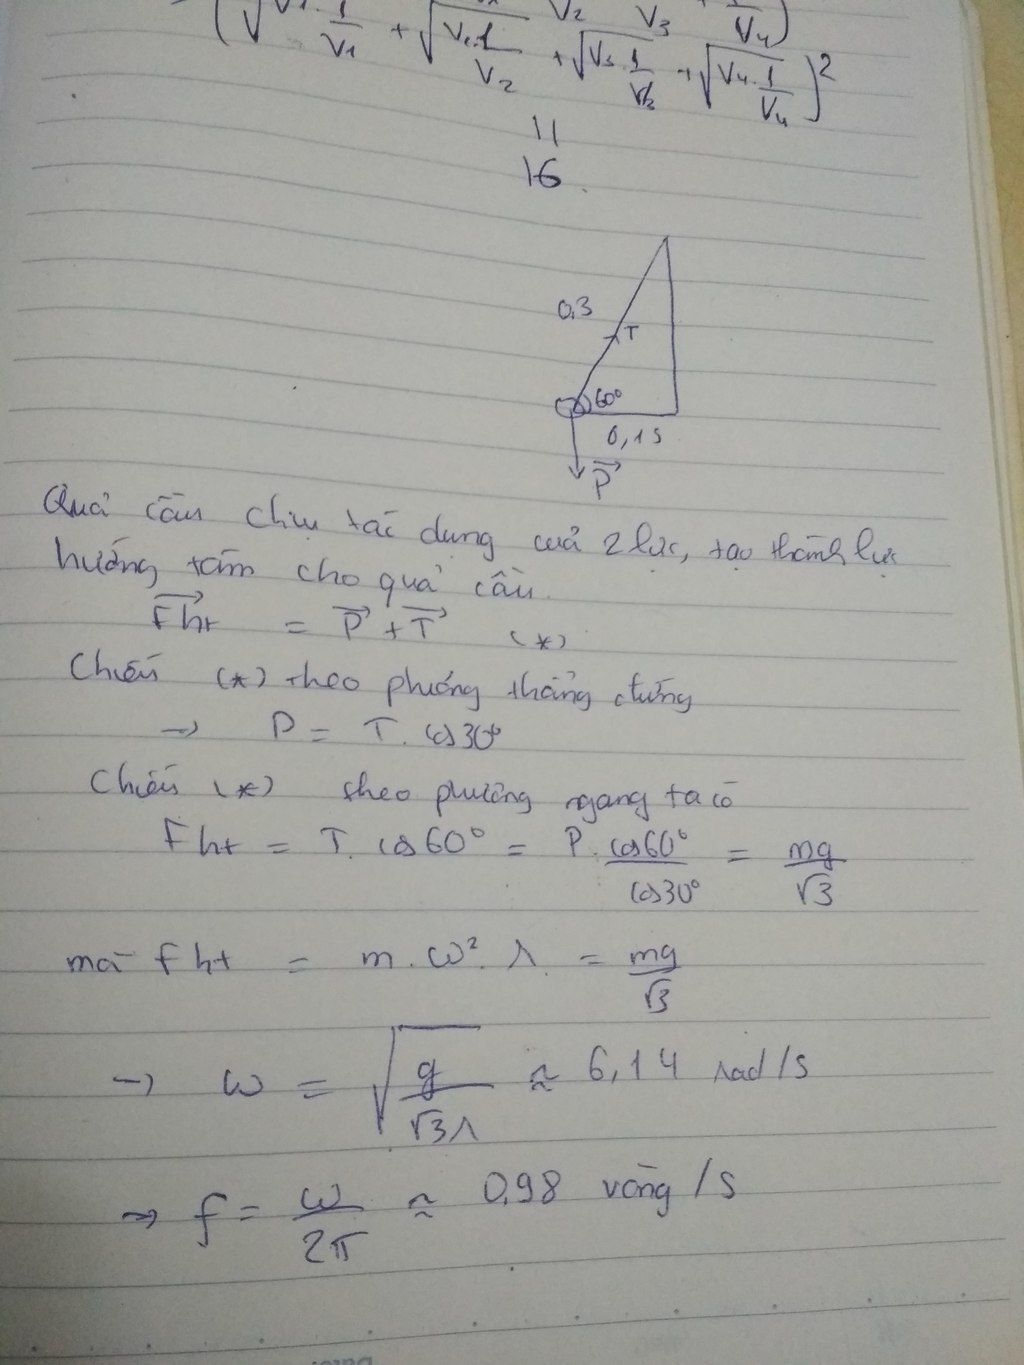 V₂ V₃ + 1/V₄)
(√V₁ · 1/V₁ + √V₂ · 1/V₂ + √V₃ · 1/V₃ + √V₄ · 1/V₄)²
11
16
0,3
T
60°
0,15
P⃗
Quả cầu chịu tác dụng của 2 lực, tạo thành lực
hướng tâm cho quả cầu.
F⃗ht = P⃗ + T⃗ (*)
Chiếu (*) theo phương thẳng đứng
→ P = T. cos30°
Chiếu (*) theo phương ngang ta có
Fht = T. cos60° = P. cos60°/cos30° = mg/√3
mà Fht = m. ω². r = mg/√3
→ ω = √(g/√3r) ≈ 6,14 rad/s
⇒ f = ω/2π ≈ 0,98 vòng/s